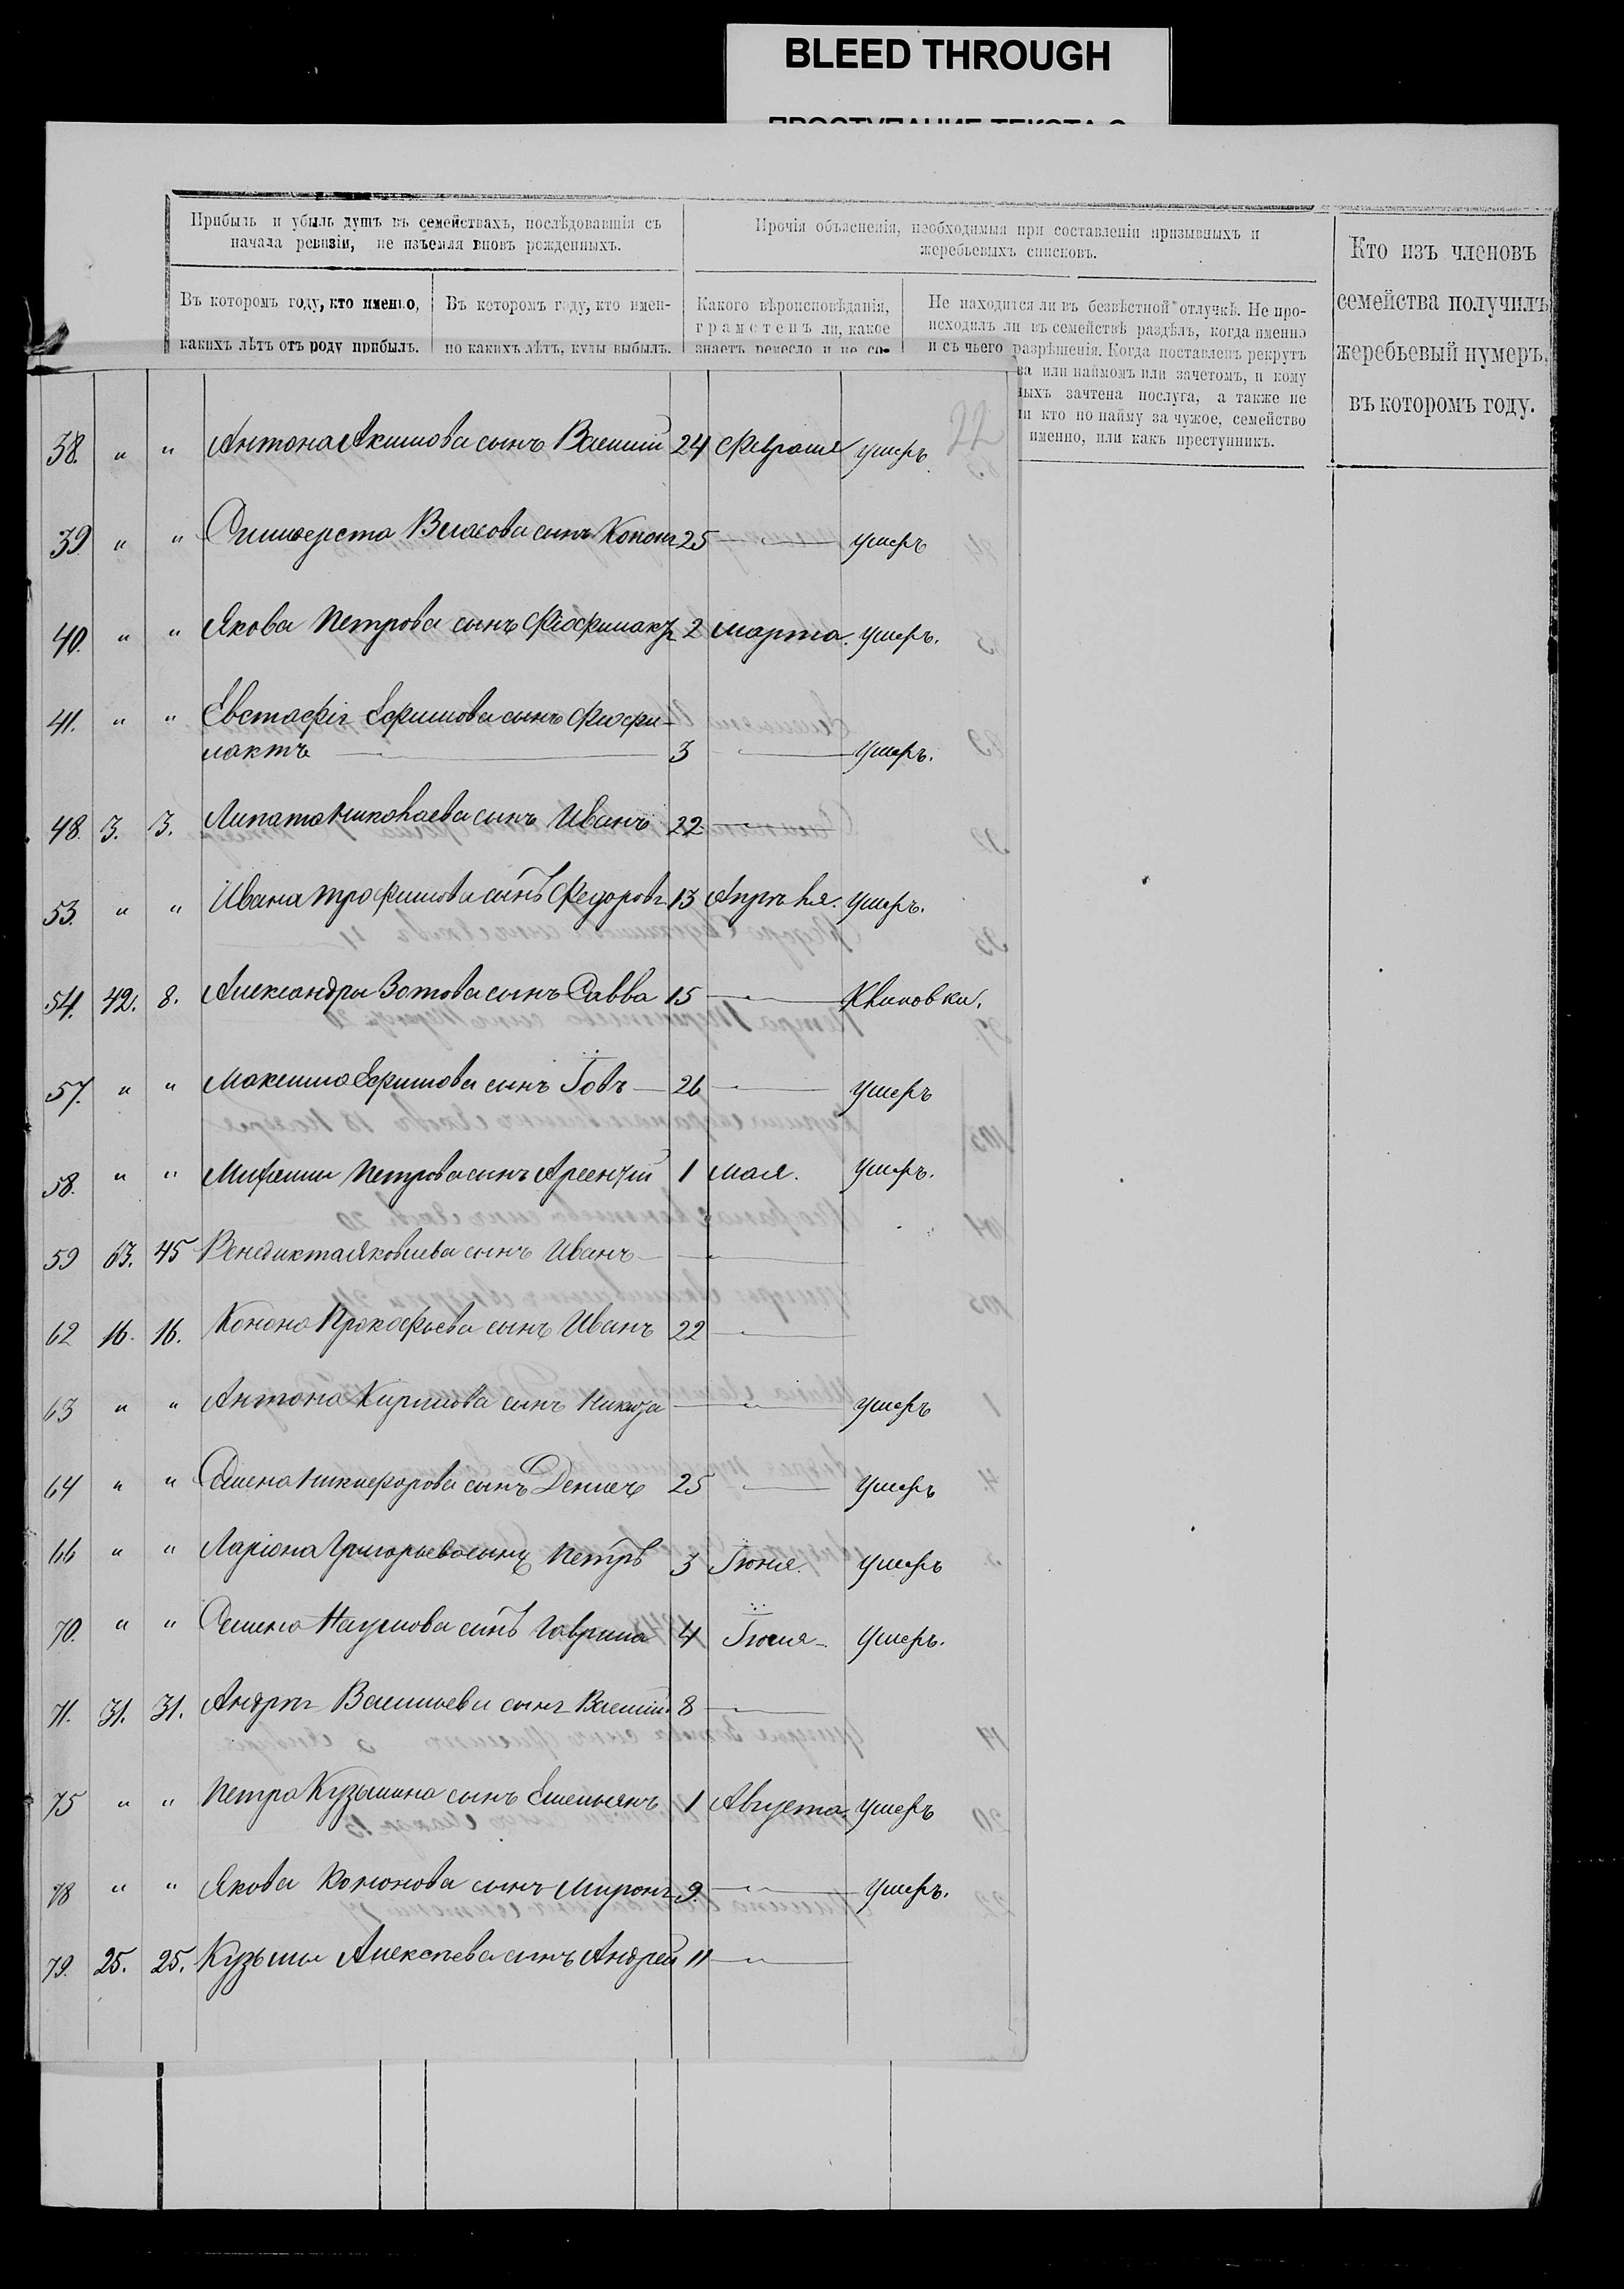 BLEED THROUGH
Прибыль и убыль душъ въ семействахъ, послѣдовавшія съ
начала ревизіи, не изъемля вновь рожденныхъ.
Прочія объясненія, необходимыя при составленіи призывныхъ и
жеребьевыхъ списковъ.
Кто изъ членовъ
семейства получилъ
жеребьевый нумеръ,
въ которомъ году.
Въ которомъ году, кто именно,
какихъ лѣтъ отъ роду прибылъ.
Въ которомъ году, кто имен-
но какихъ лѣтъ, куды выбылъ.
Какого вѣроисповѣданія,
грамотенъ ли, какое
знаетъ ремесло и не со-
Не находится ли въ безвѣстной отлучкѣ. Не про-
исходилъ ли въ семействѣ раздѣлъ, когда именно
и съ чьего разрѣшенія. Когда поставленъ рекрутъ
ва или наймомъ или зачетомъ, и кому
ныхъ зачтена послуга, а также не
ли кто по найму за чужое, семейство
именно, или какъ преступникъ.
22
38. " " Антона Акимова сынъ Василій 24 Февраля умеръ
39 " " Силиверста Власова сынъ Кононъ 25 — " — умеръ
40. " " Якова Петрова сынъ Феофилактъ 2 марта. умеръ.
41. " " Евстафія Ефимова сынъ Феофи-
лактъ — 3 — " — умеръ.
48. 3. 3. Липата Николаева сынъ Иванъ 22 — " —
53. " " Ивана Трофимова сынъ Федоръ 13 Апрѣля. умеръ.
54. 42. 8. Александра Зотова сынъ Савва 15 — " —
57. " " Максима Ефимова сынъ Іовъ — 26 — " — умеръ
58. " " Петрова сынъ Арсентій 1 мая. умеръ.
59 63. 45 Венедикта Яковлева сынъ Иванъ — " —
62 16. 16. Конона Прокофьева сынъ Иванъ 22 — " —
63 " " Антона Кирилова сынъ Никита — " — умеръ
64 " " Семена Никифорова сынъ Денисъ 25 — " — умеръ
66 " " Ларіона Григорьева сынъ Петръ 3 Іюня. умеръ
70. " " Семена Наумова сынъ Гаврила 4 Іюля — умеръ.
71. 31. 31. Андрея Васильева сынъ Василій 8 — " —
75 " " Петра Кузьмина сынъ Емельянъ 1 Августа. умеръ
78 " " Якова Кононова сынъ Миронъ 9. — " — умеръ.
79. 25. 25. Кузьмы Алексѣева сынъ Андрей 11 — " —